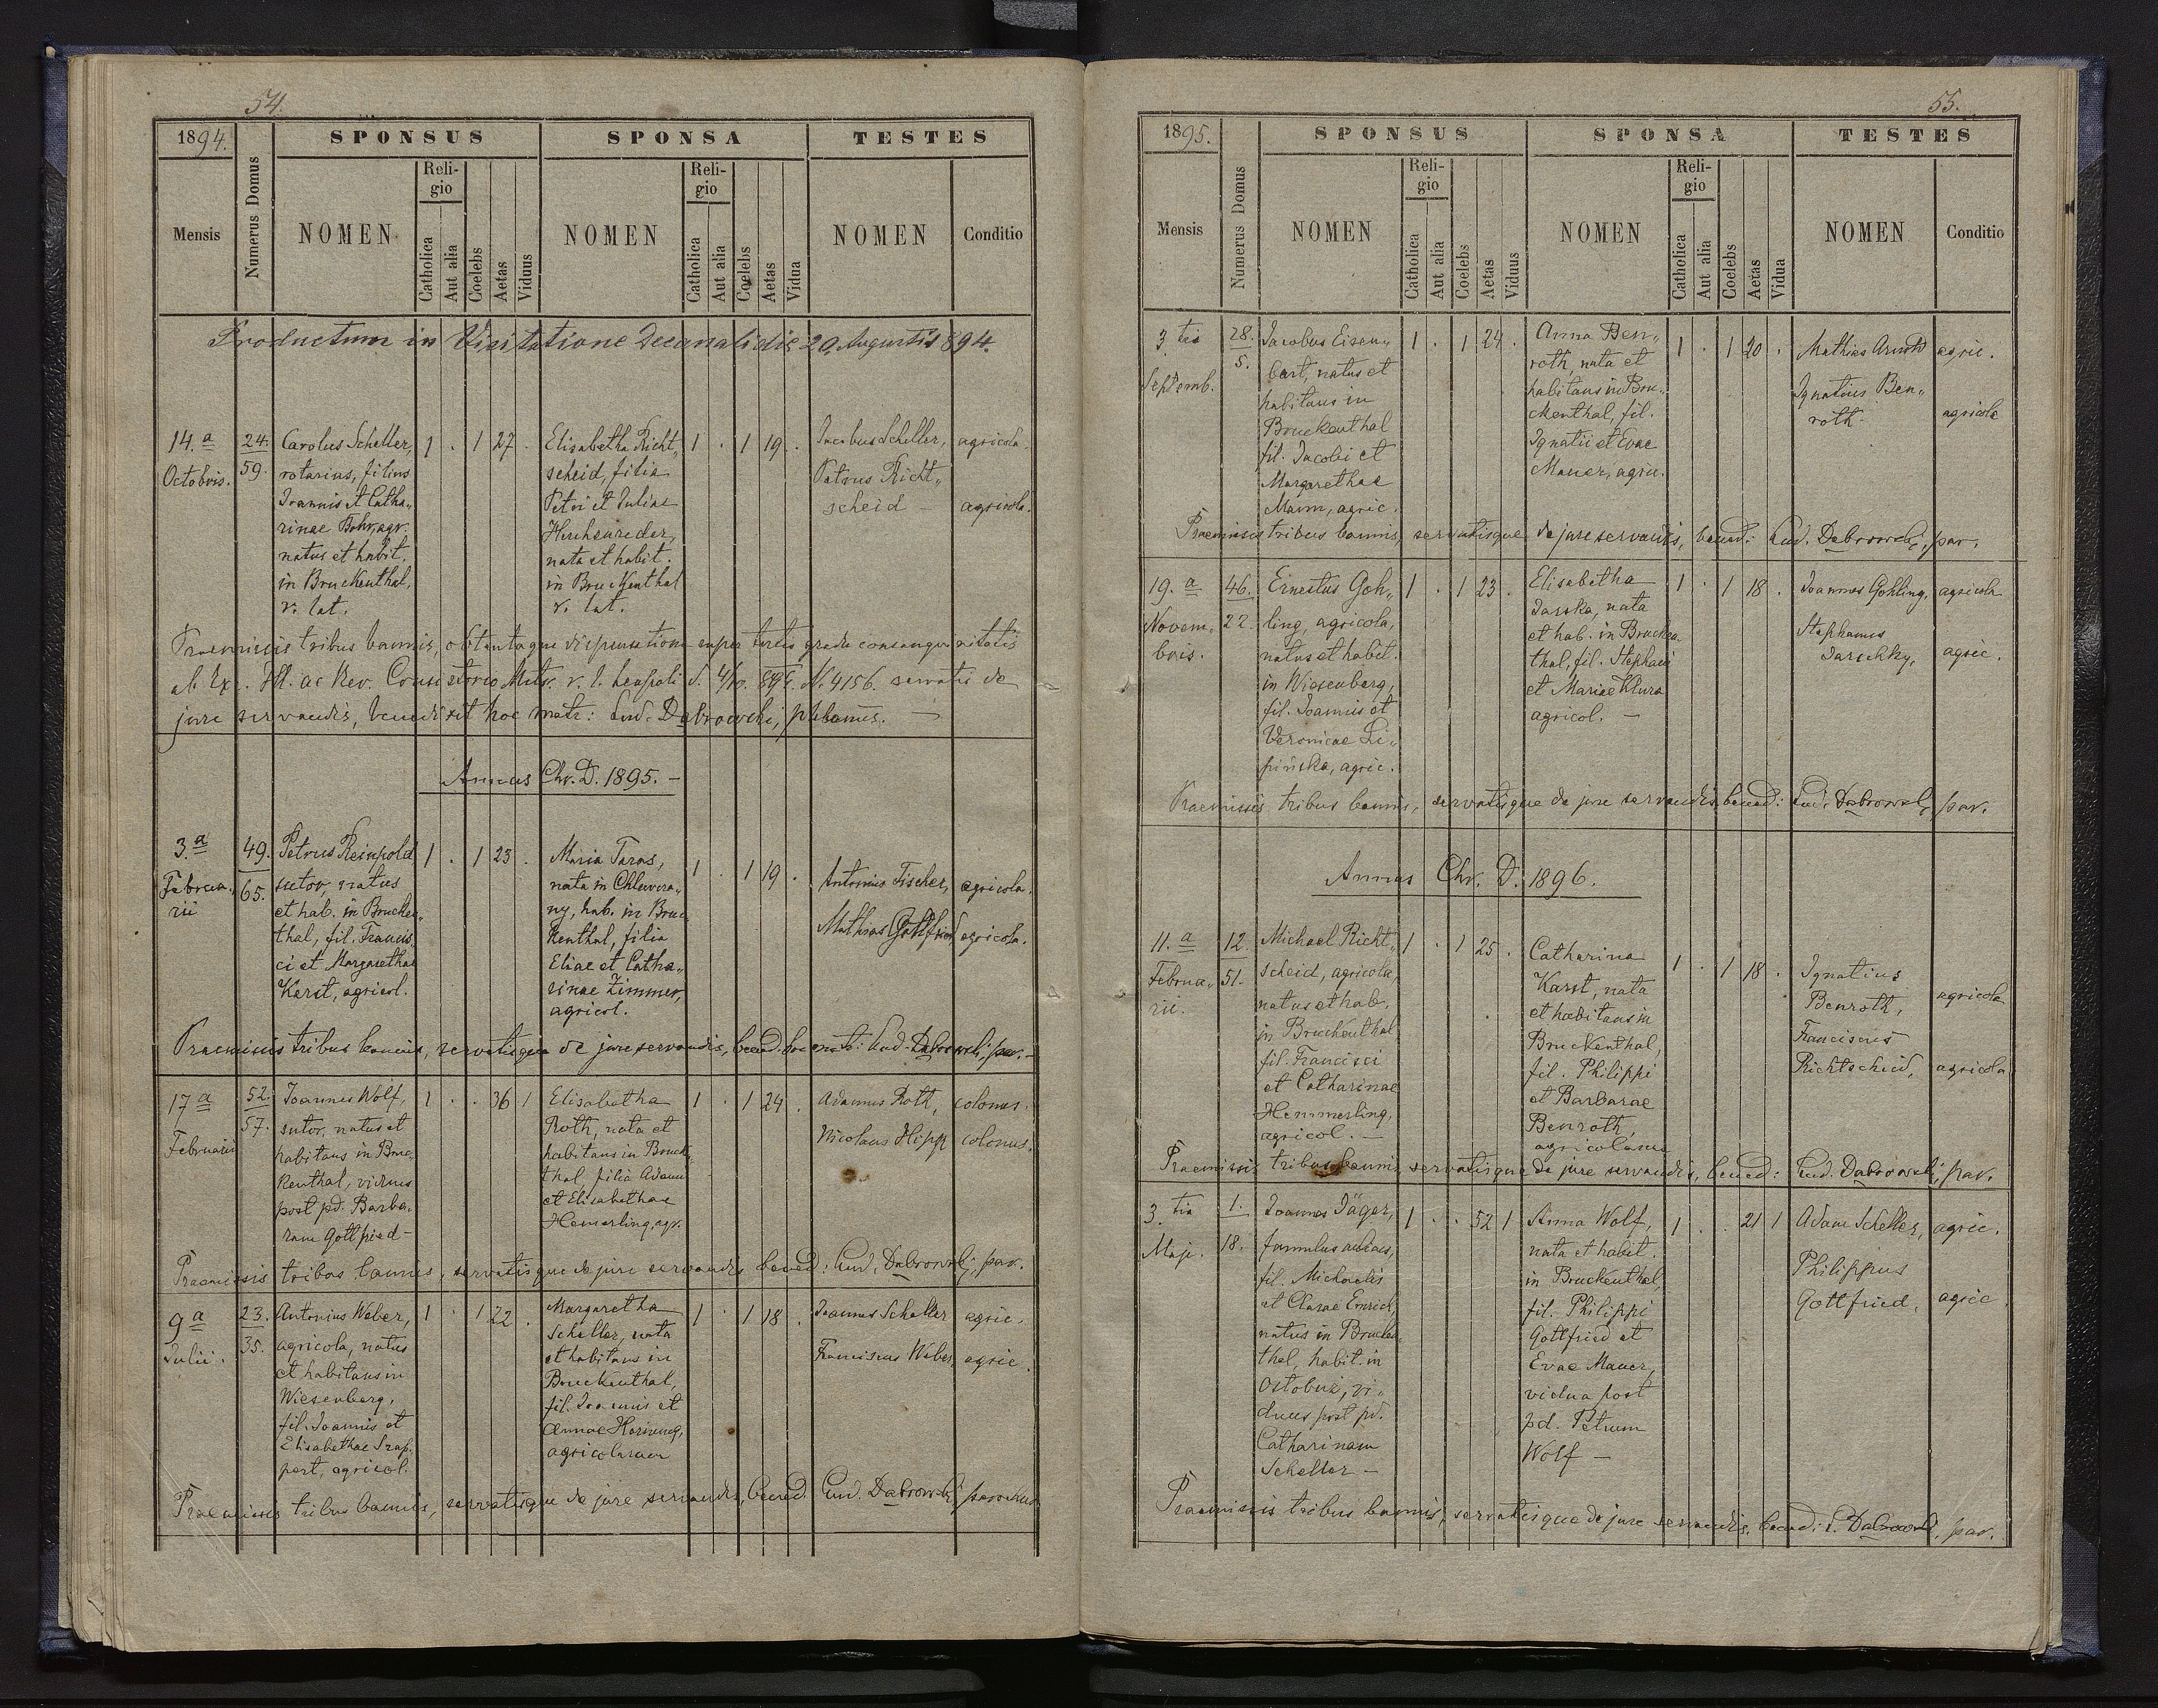 54.
1894.
Mensis
Numerus Domus
SPONSUS
NOMEN
Religio
Catholica
Aut alia
Coelebs
Aetas
Viduus
SPONSA
NOMEN
Religio
Catholica
Aut alia
Coelebs
Aetas
Vidua
TESTES
NOMEN
Conditio
Productum in Visitatione decanali die 20 Augusti 1894.
14.a
Octobris.
24.
59.
Carolus Scheller,
rotarius, filius
Joannis et Catha„
rinae Bohr, agr.
natus et habit.
in Bruckenthal,
r. lat.
1 . 1 27 .
Elisabetha Richt„
scheid, filia
Petri et Juliae
nata et habit.
in Bruckenthal
r. lat.
1 . 1 19 .
Jacobus Scheller, agricola.
Petrus Richt„
scheid – agricola.
Praemissis tribus bannis, obtentaque dispensatione super tertio gradu consanguinitatis
ab Exc. Ill. ac Rev. Consistorio Metr. r. l. Leopoli d. 4/10. 894. N. 4156. servatis de
jure servandis, benedixit hoc matr: Lud. Dąbrowski, plebanus. –
Annus Chr. D. 1895. –
3.a
Februa„
rii
49.
65.
Petrus Reinpold
sutor, natus
et hab. in Brucken„
thal, fil. Francis„
ci et Margarethae
Karst, agricol.
1 . 1 23 .
Maria Taras,
nata in Chlewcza„
ny, hab. in Bruc„
kenthal, filia
Eliae et Catha„
rinae Zimmer,
agricol.
1 . 1 19 .
Antonius Fischer, agricola.
Mathias Gottfried agricola.
Praemissis tribus bannis, servatisque de jure servandis, bened. hoc matr: Lud. Dąbrowski, par. –
17 a
Februarii
52.
57.
Joannes Wolf,
sutor, natus et
habitans in Bruc„
kenthal, viduus
post pd. Barba„
ram Gottfried –
1 . . 36 1
Elisabetha
Roth, nata et
habitans in Brucken„
thal, filia Adami
et Elisabethae
Hemerling, agr.
1 . 1 24 .
Adamus Roth, colonus.
Nicolaus Hipp colonus.
Praemissis tribus bannis, servatisque de jure servandis bened: Lud. Dąbrowski, par.
9 a
Julii.
23.
35.
Antonius Weber,
agricola, natus
et habitans in
Wiesenberg,
fil. Joannis et
Elisabethae Trap„
pert, agricol.
1 . 1 22 .
Margaretha
Scheller, nata
et habitans in
Bruckenthal,
fil. Joannis et
Annae
agricolarum
1 . 1 18 .
Joannes Scheller agric.
Franciscus Weber, agric.
Praemissis tribus bannis, servatisque de jure servandis, bened. Lud. Dąbrowski parochus
55.
1895.
Mensis
Numerus Domus
SPONSUS
NOMEN
Religio
Catholica
Aut alia
Coelebs
Aetas
Viduus
SPONSA
NOMEN
Religio
Catholica
Aut alia
Coelebs
Aetas
Vidua
TESTES
NOMEN
Conditio
3. tia
Septemb.
28.
5.
Jacobus Eisen„
bart, natus et
habitans in
Bruckenthal
fil. Jacobi et
Margarethae
Mann, agric.
1 . 1 24 .
Anna Ben„
roth, nata et
habitans in Bru„
ckenthal, fil.
Ignatii et Evae
Mauer, agric.
1 . 1 20 .
Mathias Arnold agric.
Ignatius Ben„
roth. agricola
Praemissis tribus bannis, servatisque de jure servandis, bened: Lud. Dąbrowski, par.
19. a
Novem„
bris.
46.
22.
Ernestus Goh„
ling, agricola,
natus et habit.
in Wiesenberg,
fil. Joannis et
Veronicae Li„
pińska, agric.
1 . 1 23 .
Elisabetha
Jarska, nata
et hab. in Brucken„
thal, fil. Stephani
et Mariae Klura
agricol. –
1 . 1 18 .
Joannes Gohling, agricola
Stephanus
Jarschky, agric.
Praemissis tribus bannis, servatisque de jure servandis bened: Lud. Dąbrowski, par.
Annus Chr. D. 1896.
11. a
Februa„
rii.
12.
51.
Michael Richt„
scheid, agricola,
natus et hab.
in Bruckenthal
fil. Francisci
et Catharinae
Hemmerling,
agricol. –
1 . 1 25 .
Catharina
Karst, nata
et habitans in
Bruckenthal,
fil. Philippi
et Barbarae
Benroth,
agricolarum
1 . 1 18 .
Ignatius
Benroth, agricola
Franciscus
Richtscheid, agricola
Praemissis tribus bannis, servatisque de jure servandis, bened: Lud. Dąbrowski, par.
3. tia
Maji.
1.
18.
Joannes Jäger,
famulus
fil. Michaelis
et Clarae Emrich
natus in Brucken„
thal, habit. in
Ostobuż, vi„
duus post pd.
Catharinam
Scheller –
1 . . 52 1
Anna Wolf,
nata et habit.
in Bruckenthal,
fil. Philippi
Gottfried et
Evae Mauer,
vidua post
pd. Petrum
Wolf –
1 . . 21 1
Adam Scheller, agric.
Philippus
Gottfried, agric.
Praemissis tribus bannis, servatisque de jure servandis, bened: L. Dąbrowski, par.